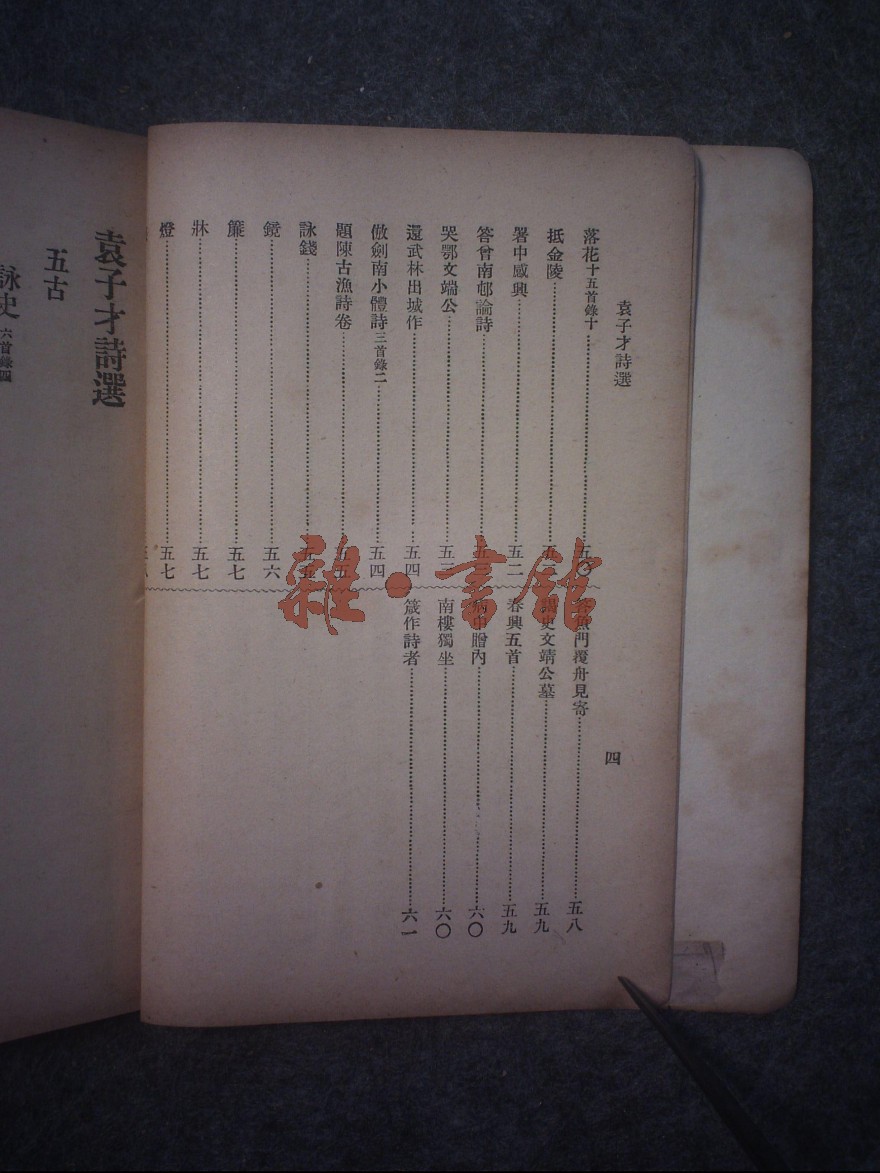 袁子才詩選
四
落花十五首錄十
抵金陵
署中感興 五二
答曾南邨論詩
哭鄂文端公 五三
還武林出城作 五四
倣劍南小體詩三首錄二 五四
題陳古漁詩卷 五五
詠錢 五五
鏡 五六
簾 五七
牀 五七
燈 五七
魚門覆舟見寄 五八
史文靖公墓 五九
春興五首 五九
病中贈內 六〇
南樓獨坐 六〇
箴作詩者 六一
袁子才詩選
五古
詠史六首錄四
雜·書館